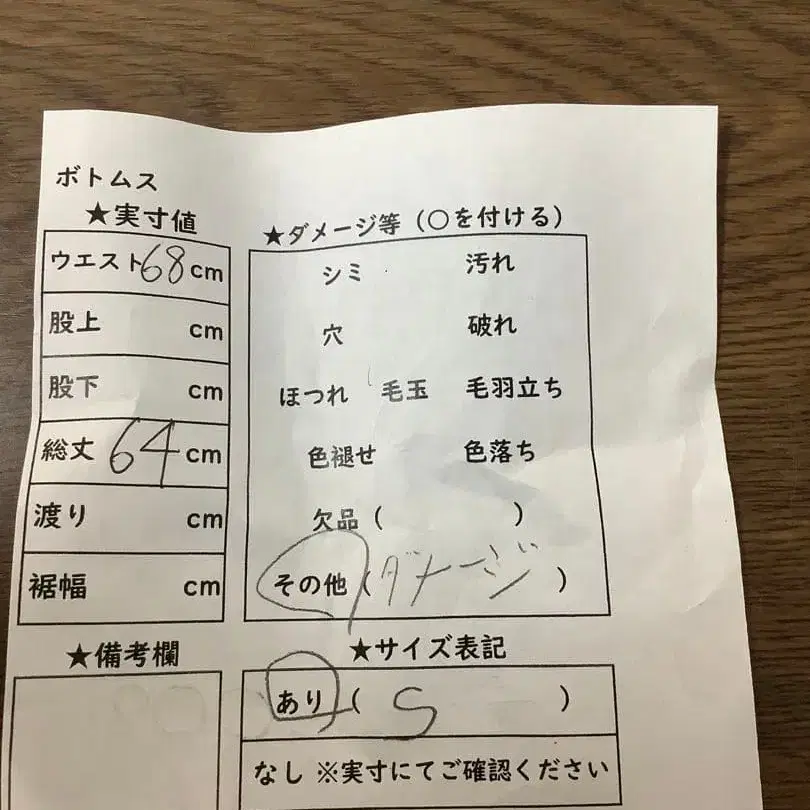 ボトムス
★実寸値
ウエスト68cm
股上 cm
股下 cm
総丈 64 cm
渡り cm
裾幅 cm
★備考欄
★ダメージ等（○を付ける）
シミ 汚れ
穴 破れ
ほつれ 毛玉 毛羽立ち
色褪せ 色落ち
欠品（ ）
その他（ダメージ）
★サイズ表記
あり（ S ）
なし ※実寸にてご確認ください